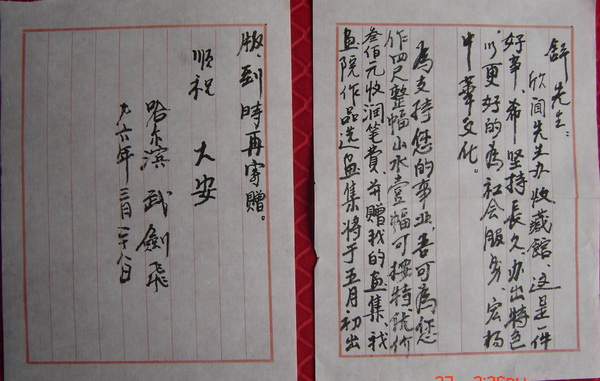 舒先生：
欣闻先生办收藏館、这是一件
好事、希堅持長久、办出特色
以更好的為社会服务、宏扬
中華文化。
為支持您的事业、吾可為您
作四尺整幅山水壹幅可按特优价
叁佰元收润笔費、并贈我的画集、我
画院作品选画集將于五月初出
版、到時再寄贈。
順祝
大安
哈尔滨 武劍飛
九六年三月二十八日